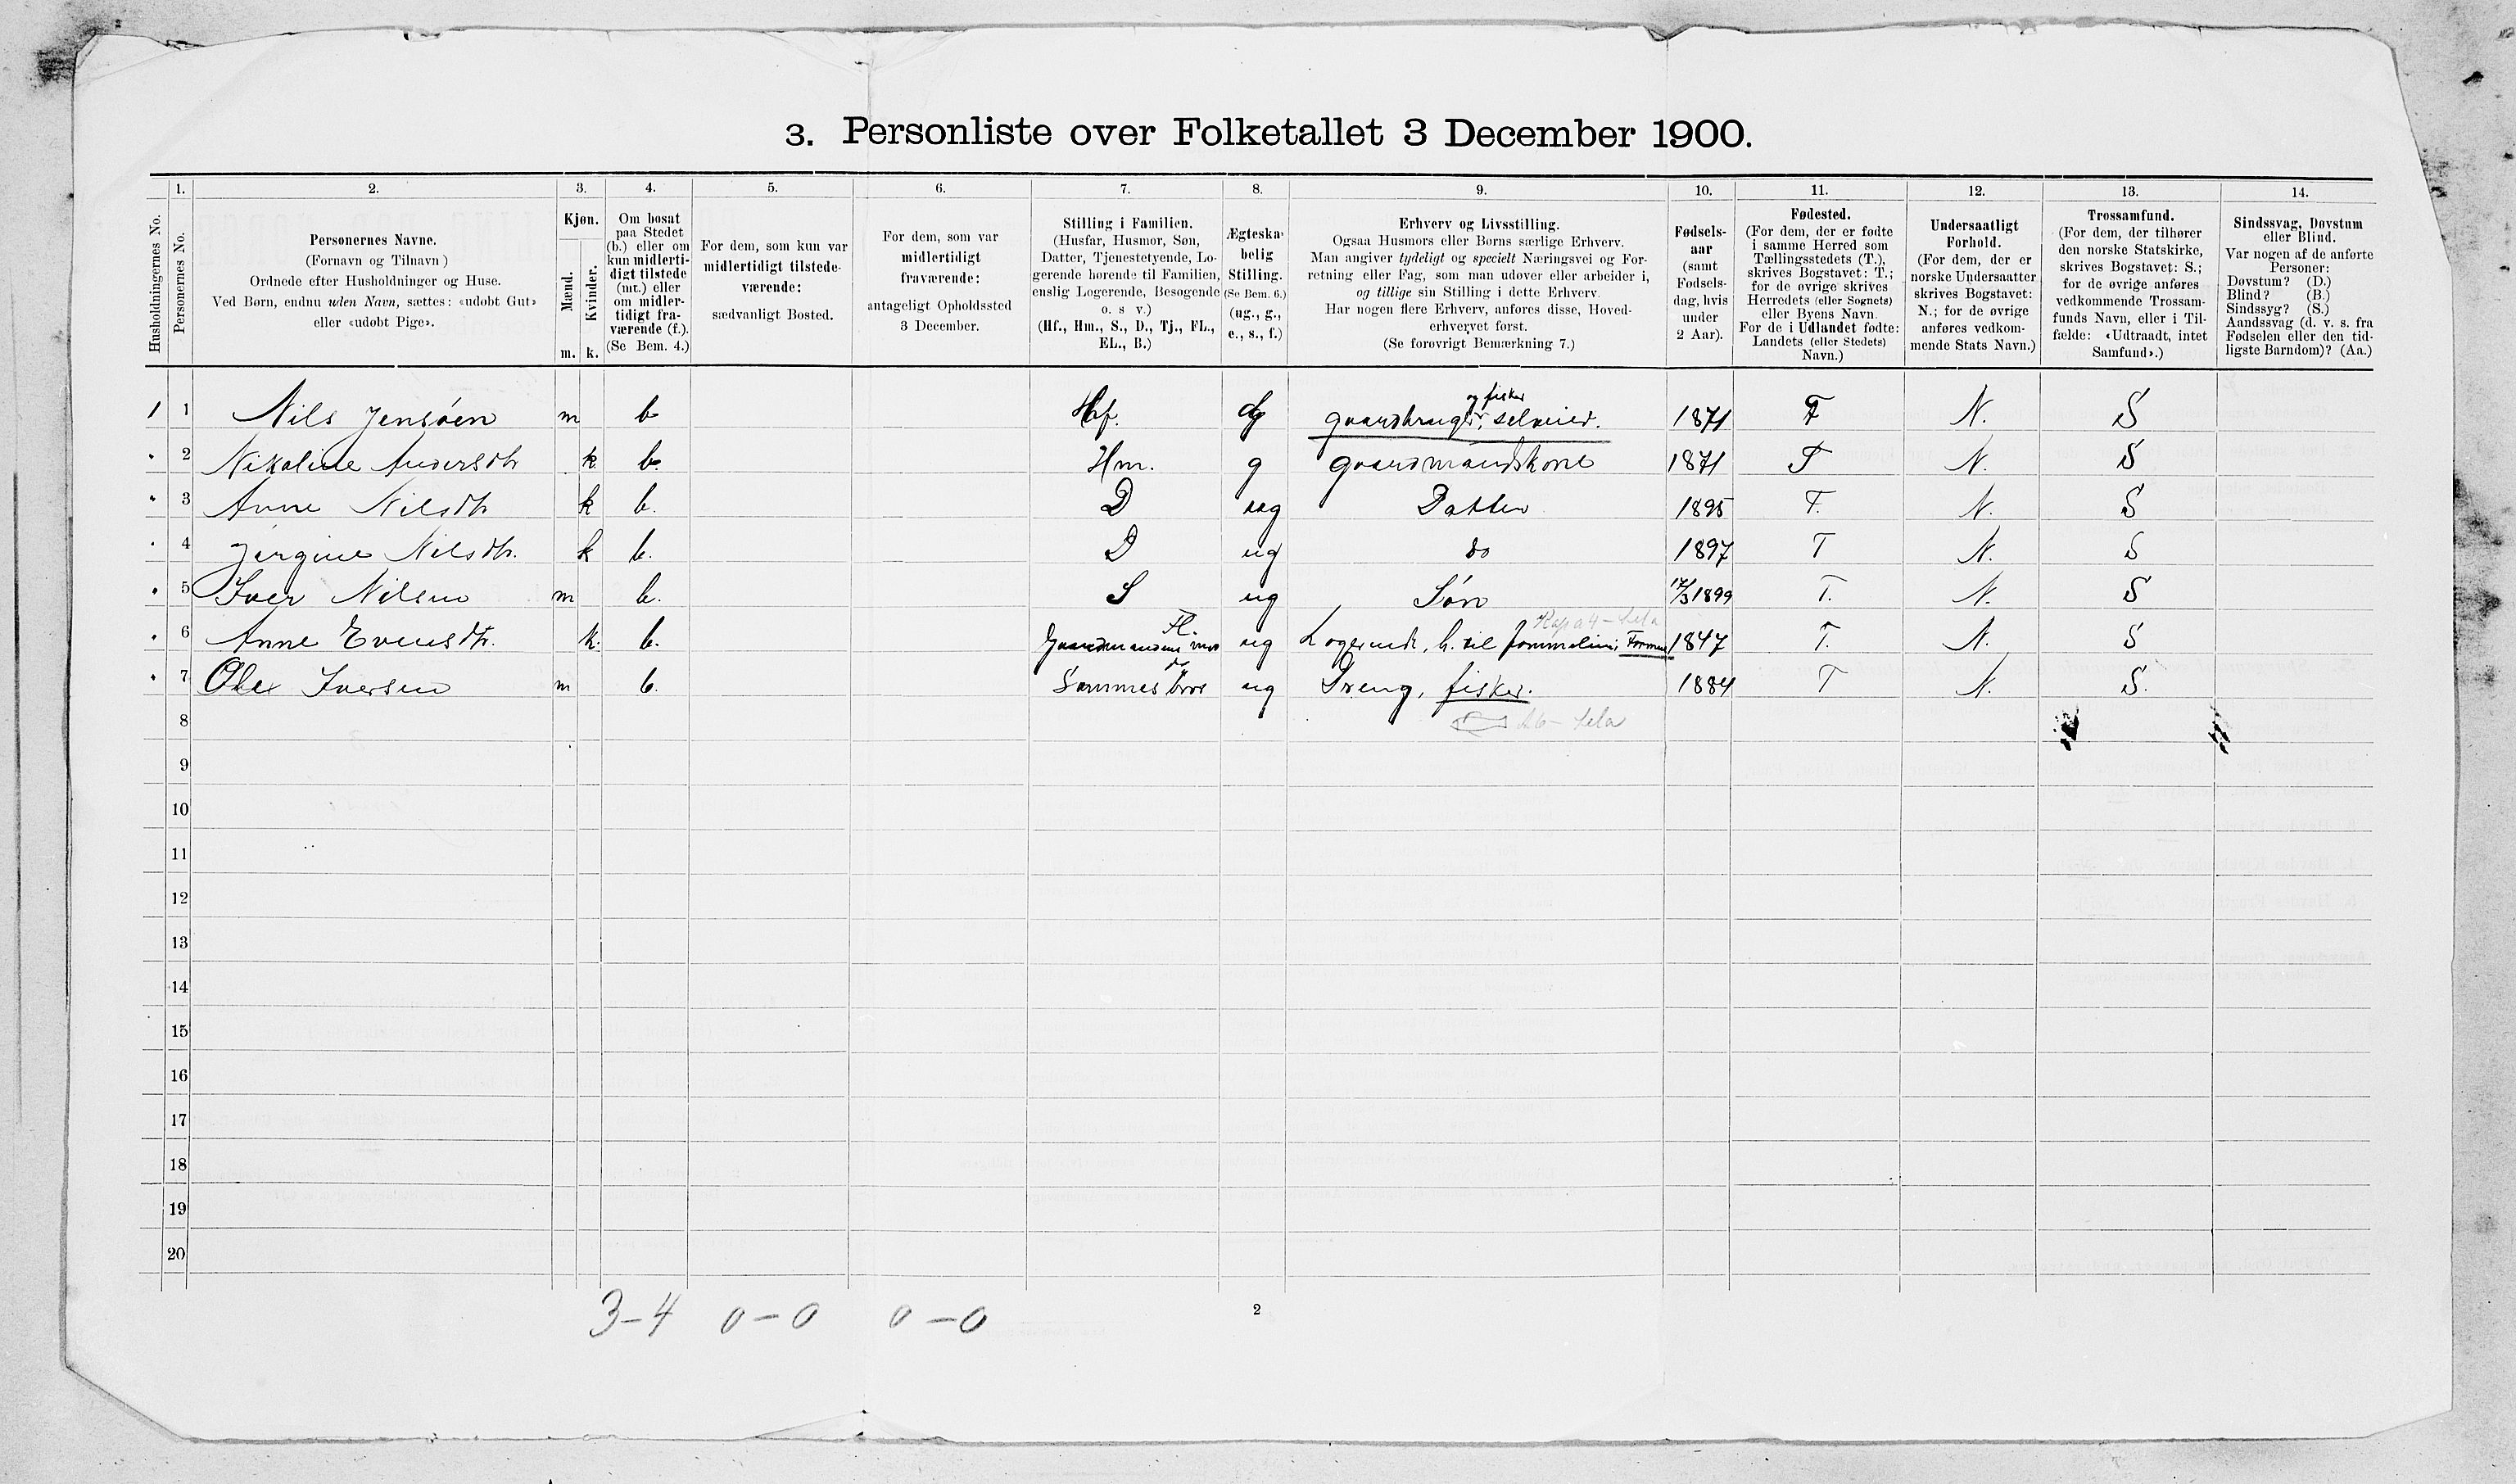 3. Personliste over Folketallet 3 December 1900.
1. 2. 3. 4. 5. 6. 7. 8. 9. 10. 11. 12. 13. 14.
Husholdningernes No.
Personernes No.
Personernes Navne.
(Fornavn og Tilnavn)
Ordnede efter Husholdninger og Huse.
Ved Børn, endnu uden Navn, sættes: «udøbt Gut»
eller «udøbt Pige».
Kjøn.
Mænd.
Kvinder.
m. k.
Om bosat
paa Stedet
(b.) eller om
kun midlerti-
digt tilstede
(mt.) eller
om midler-
tidigt fra-
værende (f.).
(Se Bem. 4.)
For dem, som kun var
midlertidigt tilstede-
værende:
sædvanligt Bosted.
For dem, som var
midlertidigt
fraværende:
antageligt Opholdssted
3 December.
Stilling i Familien.
(Husfar, Husmor, Søn,
Datter, Tjenestetyende, Lo-
gerende hørende til Familien,
enslig Logerende, Besøgende
o. s v.)
(Hf., Hm., S., D., Tj., FL.,
EL., B.)
Ægteska-
belig
Stilling.
(Se Bem. 6.)
(ug., g.,
e., s., f.)
Erhverv og Livsstilling.
Ogsaa Husmors eller Børns særlige Erhverv.
Man angiver tydeligt og specielt Næringsvei og For-
retning eller Fag, som man udøver eller arbeider i,
og tillige sin Stilling i dette Erhverv.
Har nogen flere Erhverv, anføres disse, Hoved-
erhvervet først.
(Se forøvrigt Bemærkning 7.)
Fødsels-
aar
(samt
Fødsels-
dag, hvis
under
2 Aar).
Fødested.
(For dem, der er fødte
i samme Herred som
Tællingsstedets (T.),
skrives Bogstavet: T.;
for de øvrige skrives
Herredets (eller Sognets)
eller Byens Navn.
For de i Udlandet fødte:
Landets (eller Stedets)
Navn.)
Undersaatligt
Forhold.
(For dem, der er
norske Undersaatter
skrives Bogstavet:
N.; for de øvrige
anføres vedkom-
mende Stats Navn.)
Trossamfund.
(For dem, der tilhører
den norske Statskirke,
skrives Bogstavet: S.;
for de øvrige anføres
vedkommende Trossam-
funds Navn, eller i Til-
fælde: «Udtraadt, intet
Samfund».)
Sindssvag, Døvstum
eller Blind.
Var nogen af de anførte
Personer:
Døvstum? (D.)
Blind? (B.)
Sindssyg? (S.)
Aandssvag (d. v. s. fra
Fødselen eller den tid-
ligste Barndom)? (Aa.)
og fisker
1 1 Nils Jensøen m b Hf. g gaardbruger, selveier. 1871 T N. S
" 2 Nikoline Andersdtr k b. Hm. g gaardmandskone 1871 T N. S
" 3 Anne Nilsdtr k b. D ug Datter 1895 T. N. S
" 4 Jørgine Nilsdtr. k b. D ug do 1897 T N. S
" 5 Iver Nilsen m b. S ug Søn 17/3 1899 T. N. S
Fl.
" 6 Anne Evensdtr. k. b. Gaardmandens mor ug Logerende, h. til familien; 1847 T. N. S
do
" 7 Ole Iversen m b. Sammes bror ug Dreng, fisker. 1884 T N. S.
8
9
10
11
12
13
14
15
16
17
18
19
20
3-4 0-0 0-0
2